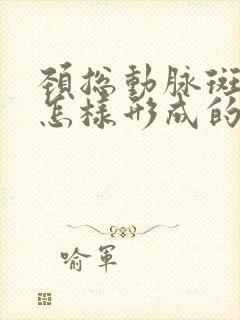 頸總動脉斑
怎樣形成的
喻軍